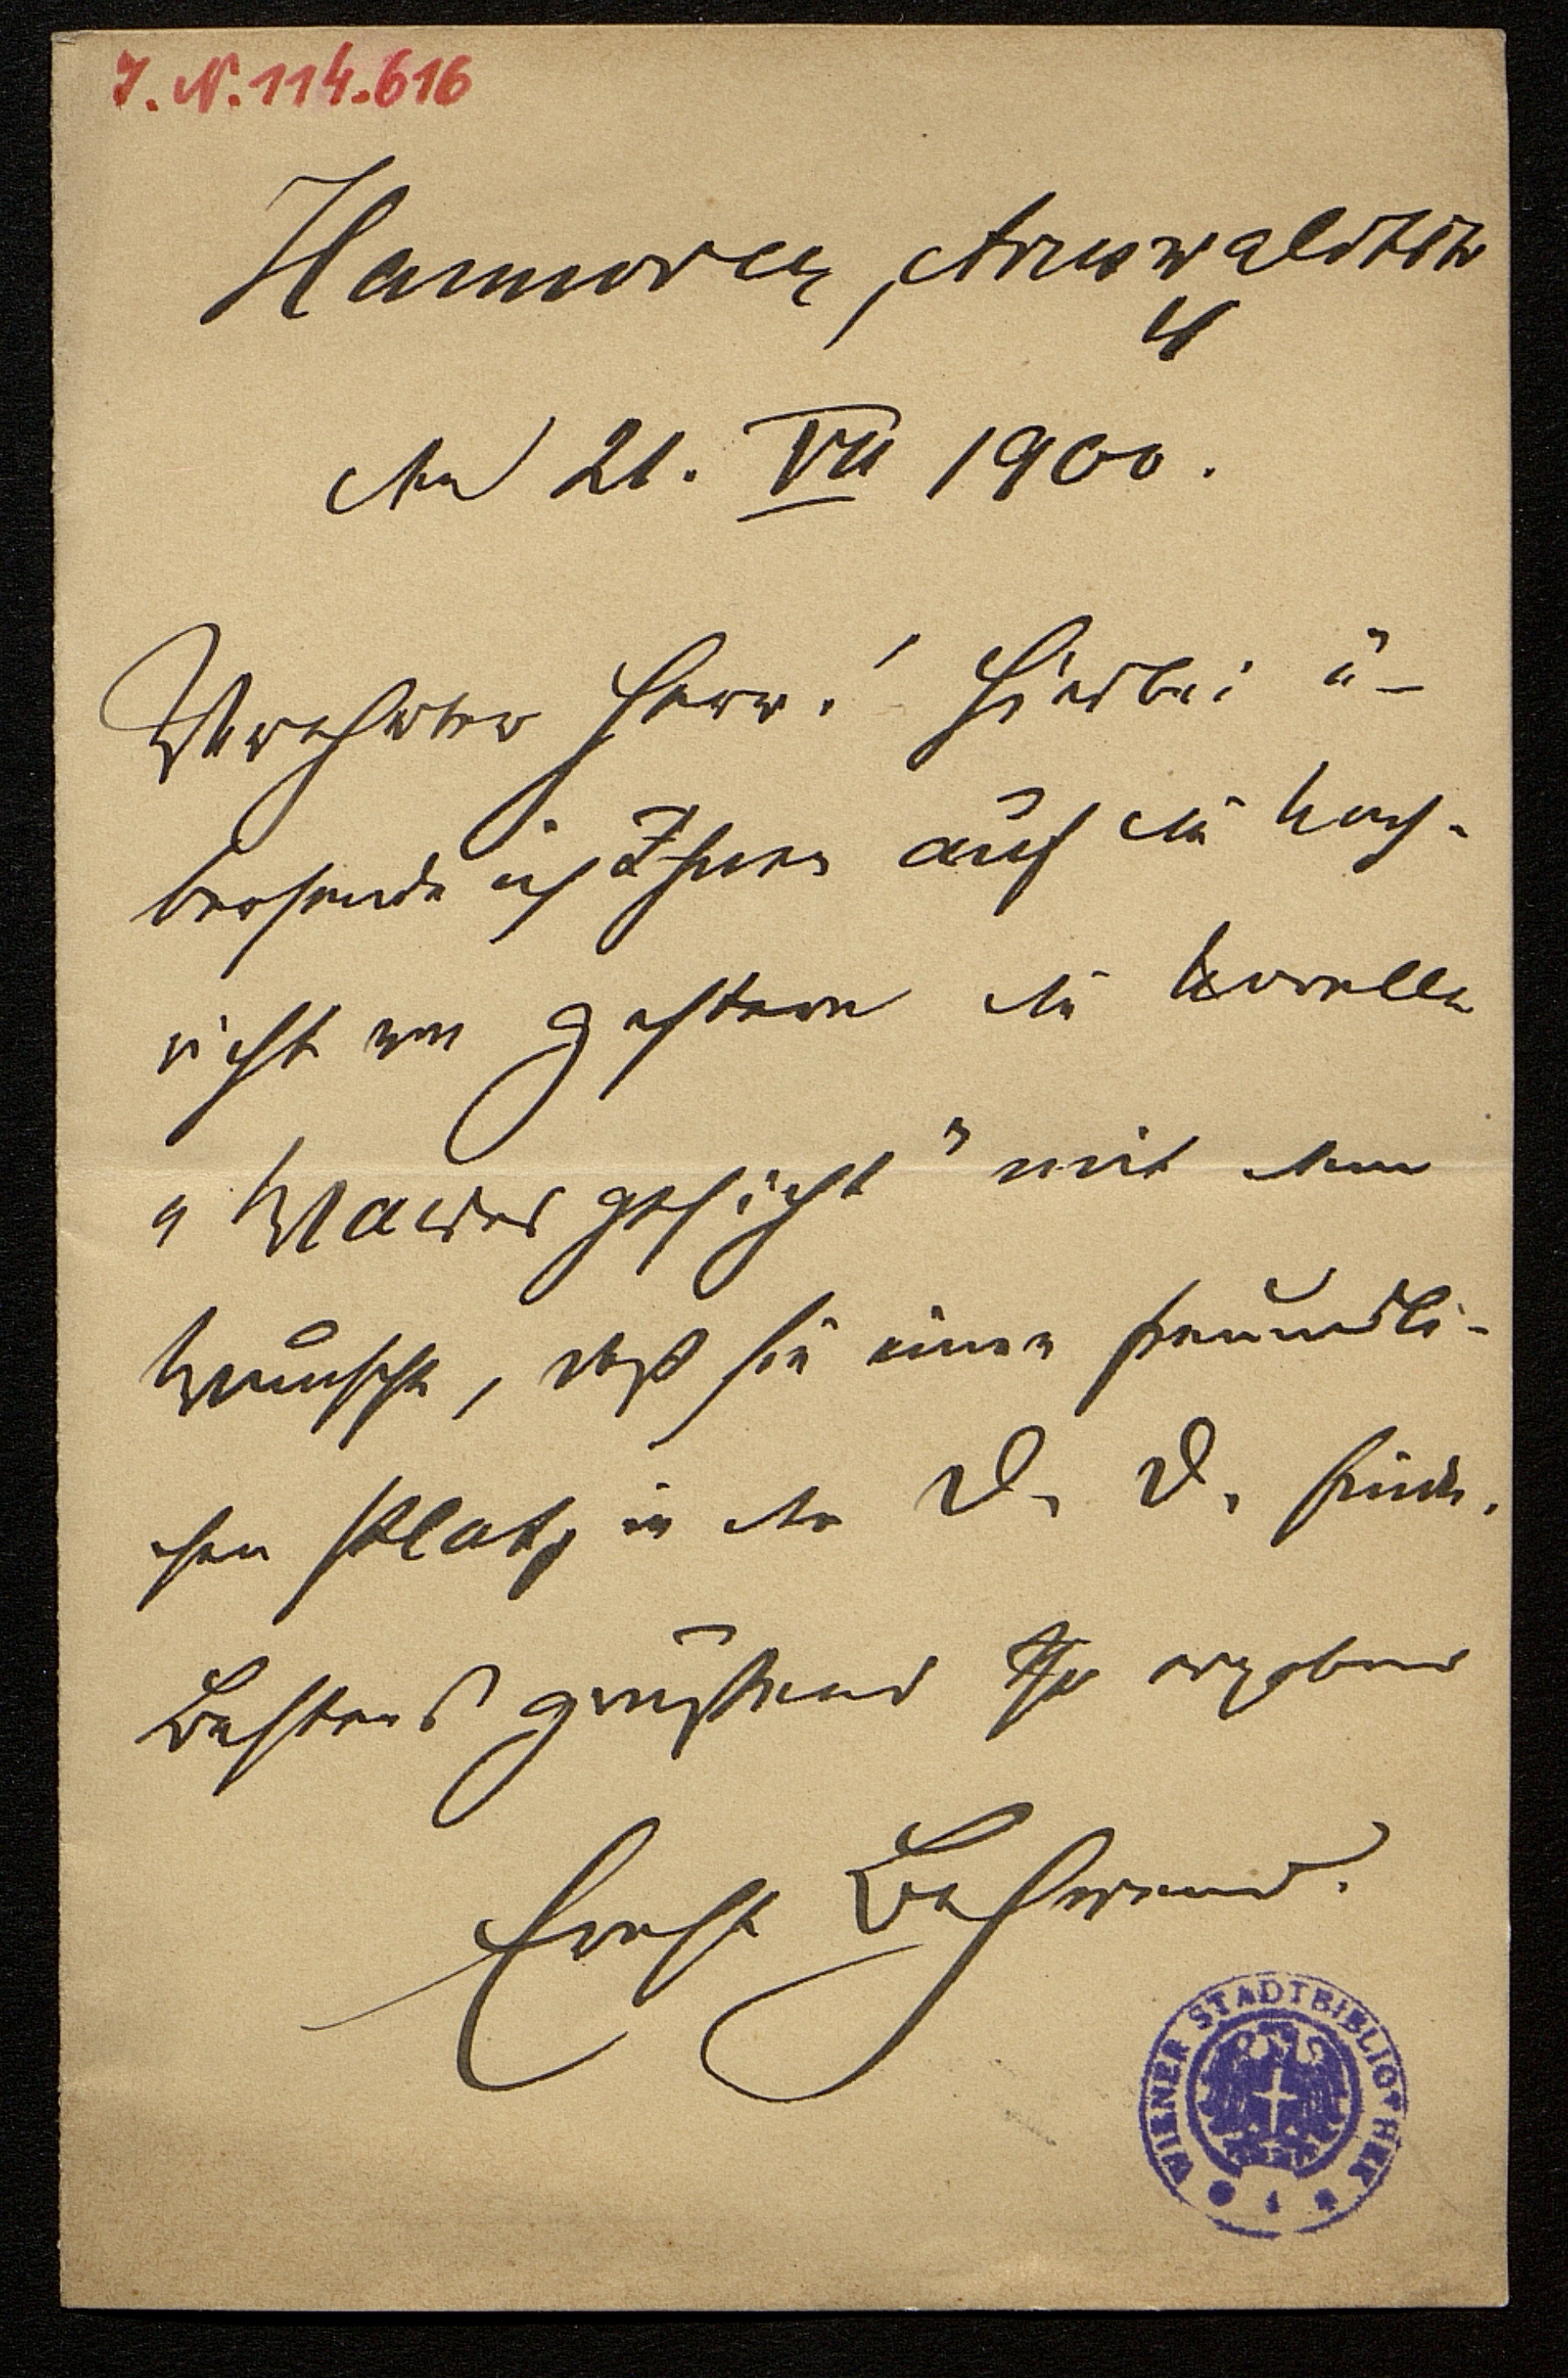 J.N. 114.616
Hannover, Arnswaldtstr
4
den 21. VII 1900.
Verehrter Herr! Hierbei ü-
bersende ich Ihnen auf die Nach-
richt von gestern die Novelle
„ gesicht" mit dem
Wunsche, daß sie einen freundli-
chen Platz in der D. D. finde.
Bestens grüßend Ihr ergebener
Ernst
WIENER STADTBIBLIOTHEK